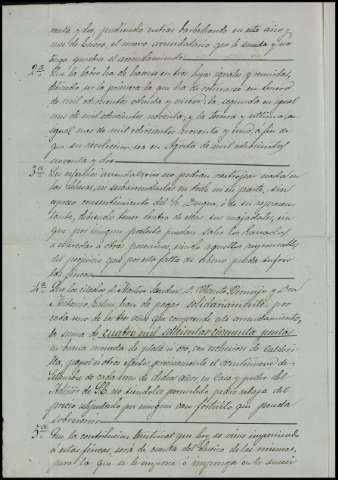 mero y dos, pudiendo entrar barbechando en este año,
mes de Enero, el nuevo arrendatario que le suceda y no
tenga quiebra el arrendamiento
2ª Que la labor ha de hacerse en tres hojas iguales y seguidas,
dejando ser la primera la que ha de sembrarse en Enero
de mil ochocientos ochenta y nueve; la segunda en igual
mes de mil ochocientos noventa, y la tercera y última en
igual mes de mil ochocientos noventa y uno, a fin de
que su recolección sea en Agosto de mil ochocientos
noventa y dos
3ª Los arrendatarios no podrán rastrojar nada en
las dehesas, ni subarrendarlas en todo ni en parte, sin
expreso consentimiento del Sr. Duque, o de su represen
tante, debiendo tener dentro de ellas sus majadales, sin
que por ningun pretesto puedan salir los ganados
a otras provincias, siendo aquellos responsables
del perjuicio que por esta falta de abono pueda sufrir
las fincas
4ª Que los citados D. Martin Sanchez, D. Vicente Borrajo y Don
han de pagar solidariamente por
cada uno de los tres años que comprende este arrendamiento,
la suma de cuatro mil setecientas cincuenta pesetas
en buena moneda de plata u oro, con exclusion de calderi
lla, papel u otros efectos precisamente el veinticinco de
de cada uno de dichos años, en Casa y poder del
Admor de S.E. no siendoles permitido pedir rebaja del
precio estipulado por ningun caso fortuito que pueda
sobrevenir
5ª Que la contribucion territorial que hoy se viene imponiendo
a estas fincas, será de cuenta del dueño de las mismas,
pero la que se le imponga en lo sucesi